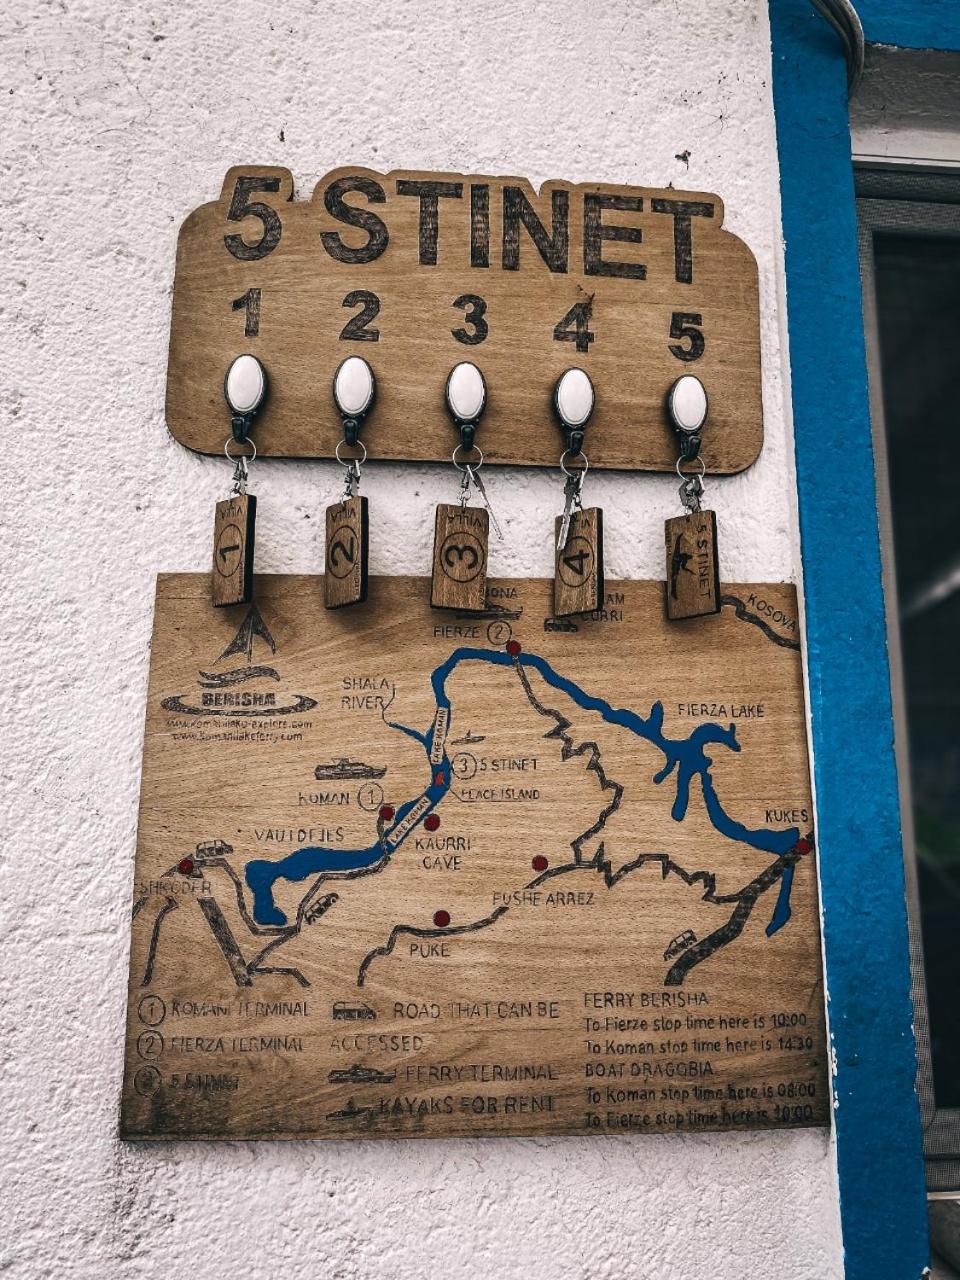 5 STINET
1 2 3 4 5
VILLA VILLA VILLA VILLA
1 2 3 4 5 STINET
KOSOVA
FIERZE 2
SHALA
RIVER
FIERZA LAKE
BERISHA
www.komanilake-explore.com
www.komanilakeferry.com
LAKE KOMAN
3 5 STINET
PEACE ISLAND
KOMAN 1
LAKE KOMAN
KUKES
VAUIDEJES
KAURRI
CAVE
SHKODER
FUSHE ARREZ
PUKE
1 KOMANI TERMINAL
2 FIERZA TERMINAL
3 5 STINET
ROAD THAT CAN BE
ACCESSED
FERRY TERMINAL
KAYAKS FOR RENT
FERRY BERISHA
To Fierze stop time here is 10:00
To Koman stop time here is 14:30
BOAT DRAGOBIA
To Koman stop time here is 08:00
To Fierze stop time here is 10:00